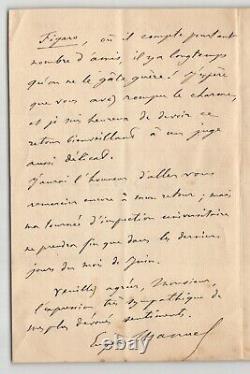 Figaro, où il compte pourtant
nombre d'amis, il y a longtemps
qu'on ne le gâte guère! J'espère
que vous avez rompu le charme,
et je suis heureux de devoir ce
retour bienveillant à un juge
aussi délicat.
J'aurai l'honneur d'aller vous
remercier encore à mon retour; mais
ma tournée d'inspection universitaire
ne prendra fin que dans les derniers
jours du mois de Juin.
Veuillez agréer, Monsieur,
l'expression très sympathique de
mes plus dévoués sentiments.
Eug. Manuel